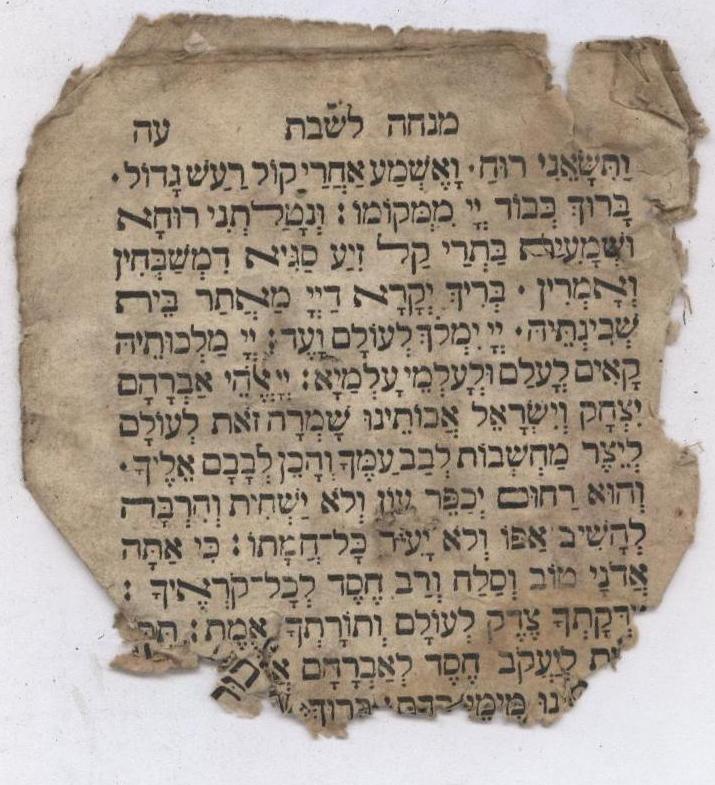 מנחה לשבת עה
וַתִּשָּׂאֵנִי רוּחַ· וָאֶשְׁמַע אַחֲרַי קוֹל רַעַשׁ גָּדוֹל·
בָּרוּךְ כְּבוֹד יְיָ מִמְּקוֹמוֹ: וּנְטָלַתְנִי רוּחָא
וּשְׁמָעִית בַּתְרַי קָל זִיעַ סַגִּיא דִמְשַׁבְּחִין
וְאָמְרִין· בְּרִיךְ יְקָרָא דַיְיָ מֵאֲתַר בֵּית
שְׁכִינְתֵּיהּ· יְיָ יִמְלֹךְ לְעוֹלָם וָעֶד: יְיָ מַלְכוּתֵיהּ
קָאִים לְעָלַם וּלְעָלְמֵי עָלְמַיָּא: יְיָ אֱלֹהֵי אַבְרָהָם
יִצְחָק וְיִשְׂרָאֵל אֲבוֹתֵינוּ שָׁמְרָה זֹאת לְעוֹלָם
לְיֵצֶר מַחְשְׁבוֹת לְבַב עַמֶּךָ וְהָכֵן לְבָבָם אֵלֶיךָ·
וְהוּא רַחוּם יְכַפֵּר עָוֹן וְלֹא יַשְׁחִית וְהִרְבָּה
לְהָשִׁיב אַפּוֹ וְלֹא יָעִיר כָּל־חֲמָתוֹ: כִּי אַתָּה
אֲדֹנָי טוֹב וְסַלָּח וְרַב חֶסֶד לְכָל־קֹרְאֶיךָ:
צִדְקָתְךָ צֶדֶק לְעוֹלָם וְתוֹרָתְךָ אֱמֶת:
לְיַעֲקֹב חֶסֶד לְאַבְרָהָם
מִימֵי קֶדֶם· בָּרוּךְ